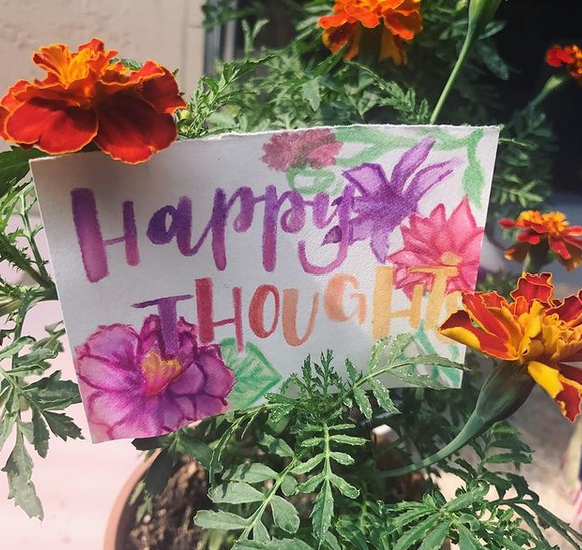 Happy
THOUGHT